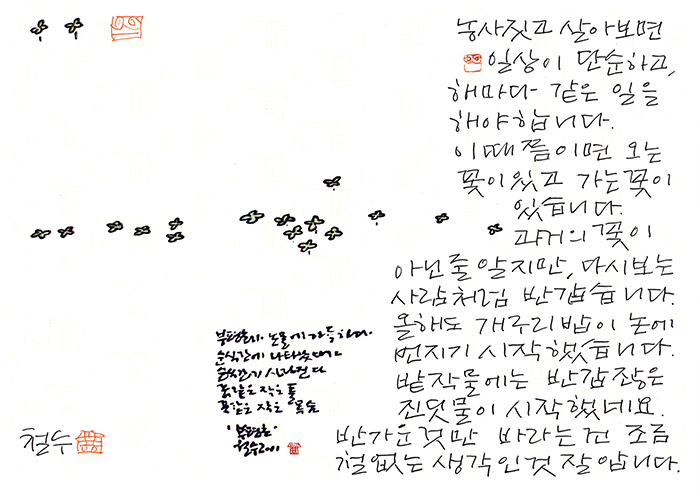 농사짓고 살아보면
일상이 단순하고,
해마다 같은 일을
해야 합니다.
이때쯤이면 오는
꽃이 있고 가는 꽃이
있습니다.
과거의 꽃이
아닌 줄 알지만, 다시 보는
사람처럼 반갑습니다.
올해도 개구리밥이 논에
번지기 시작했습니다.
밭작물에는 반갑잖은
진딧물이 시작했네요.
반가운 것만 바라는 건 조금
철없는 생각인 것 잘 압니다.
가득하다.
순식간에
작은
작은 목숨
철수